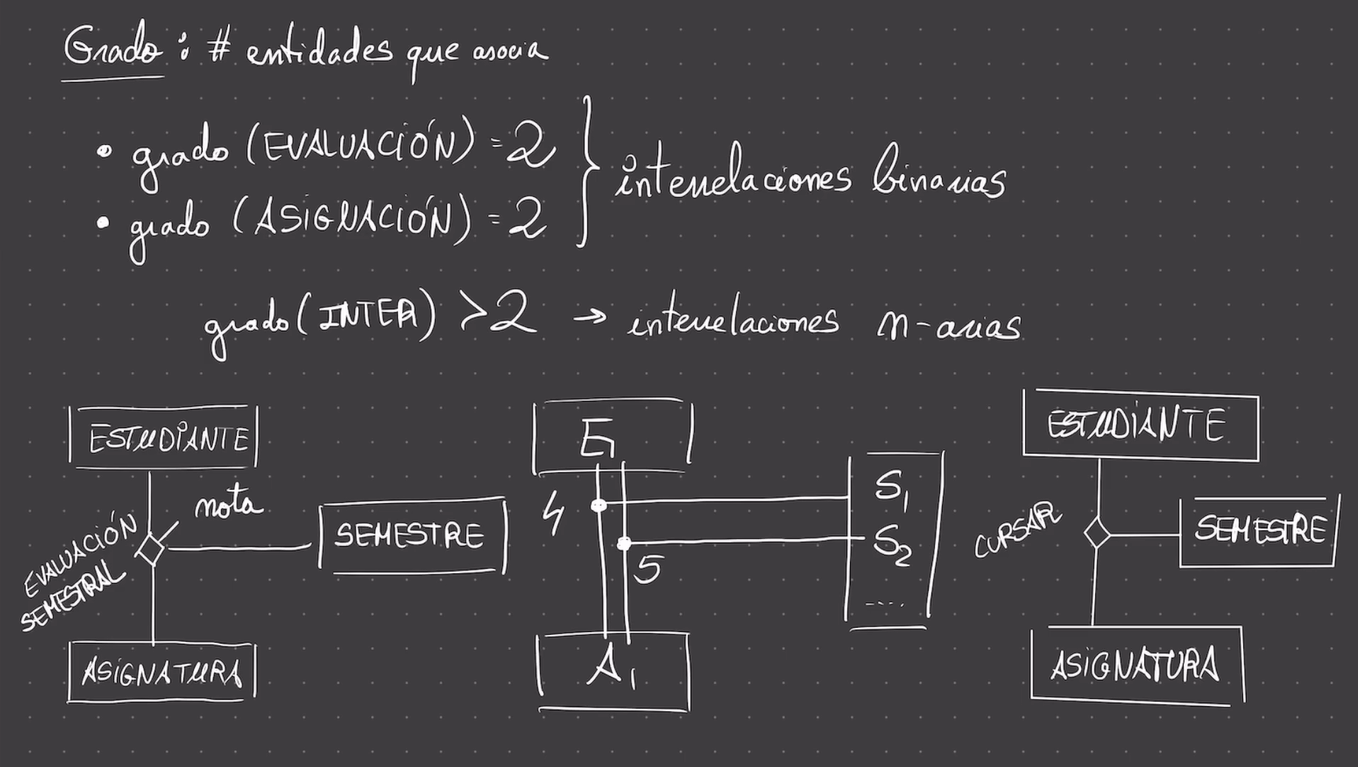 Grado : # entidades que asocia
• grado (EVALUACIÓN) = 2
• grado (ASIGNACIÓN) = 2
interrelaciones binarias
grado (INTER) > 2 → interrelaciones n-arias
ESTUDIANTE
nota
EVALUACIÓN
SEMESTRAL
SEMESTRE
ASIGNATURA
E1
4
5
S1
S2
....
A1
ESTUDIANTE
CURSAR
SEMESTRE
ASIGNATURA